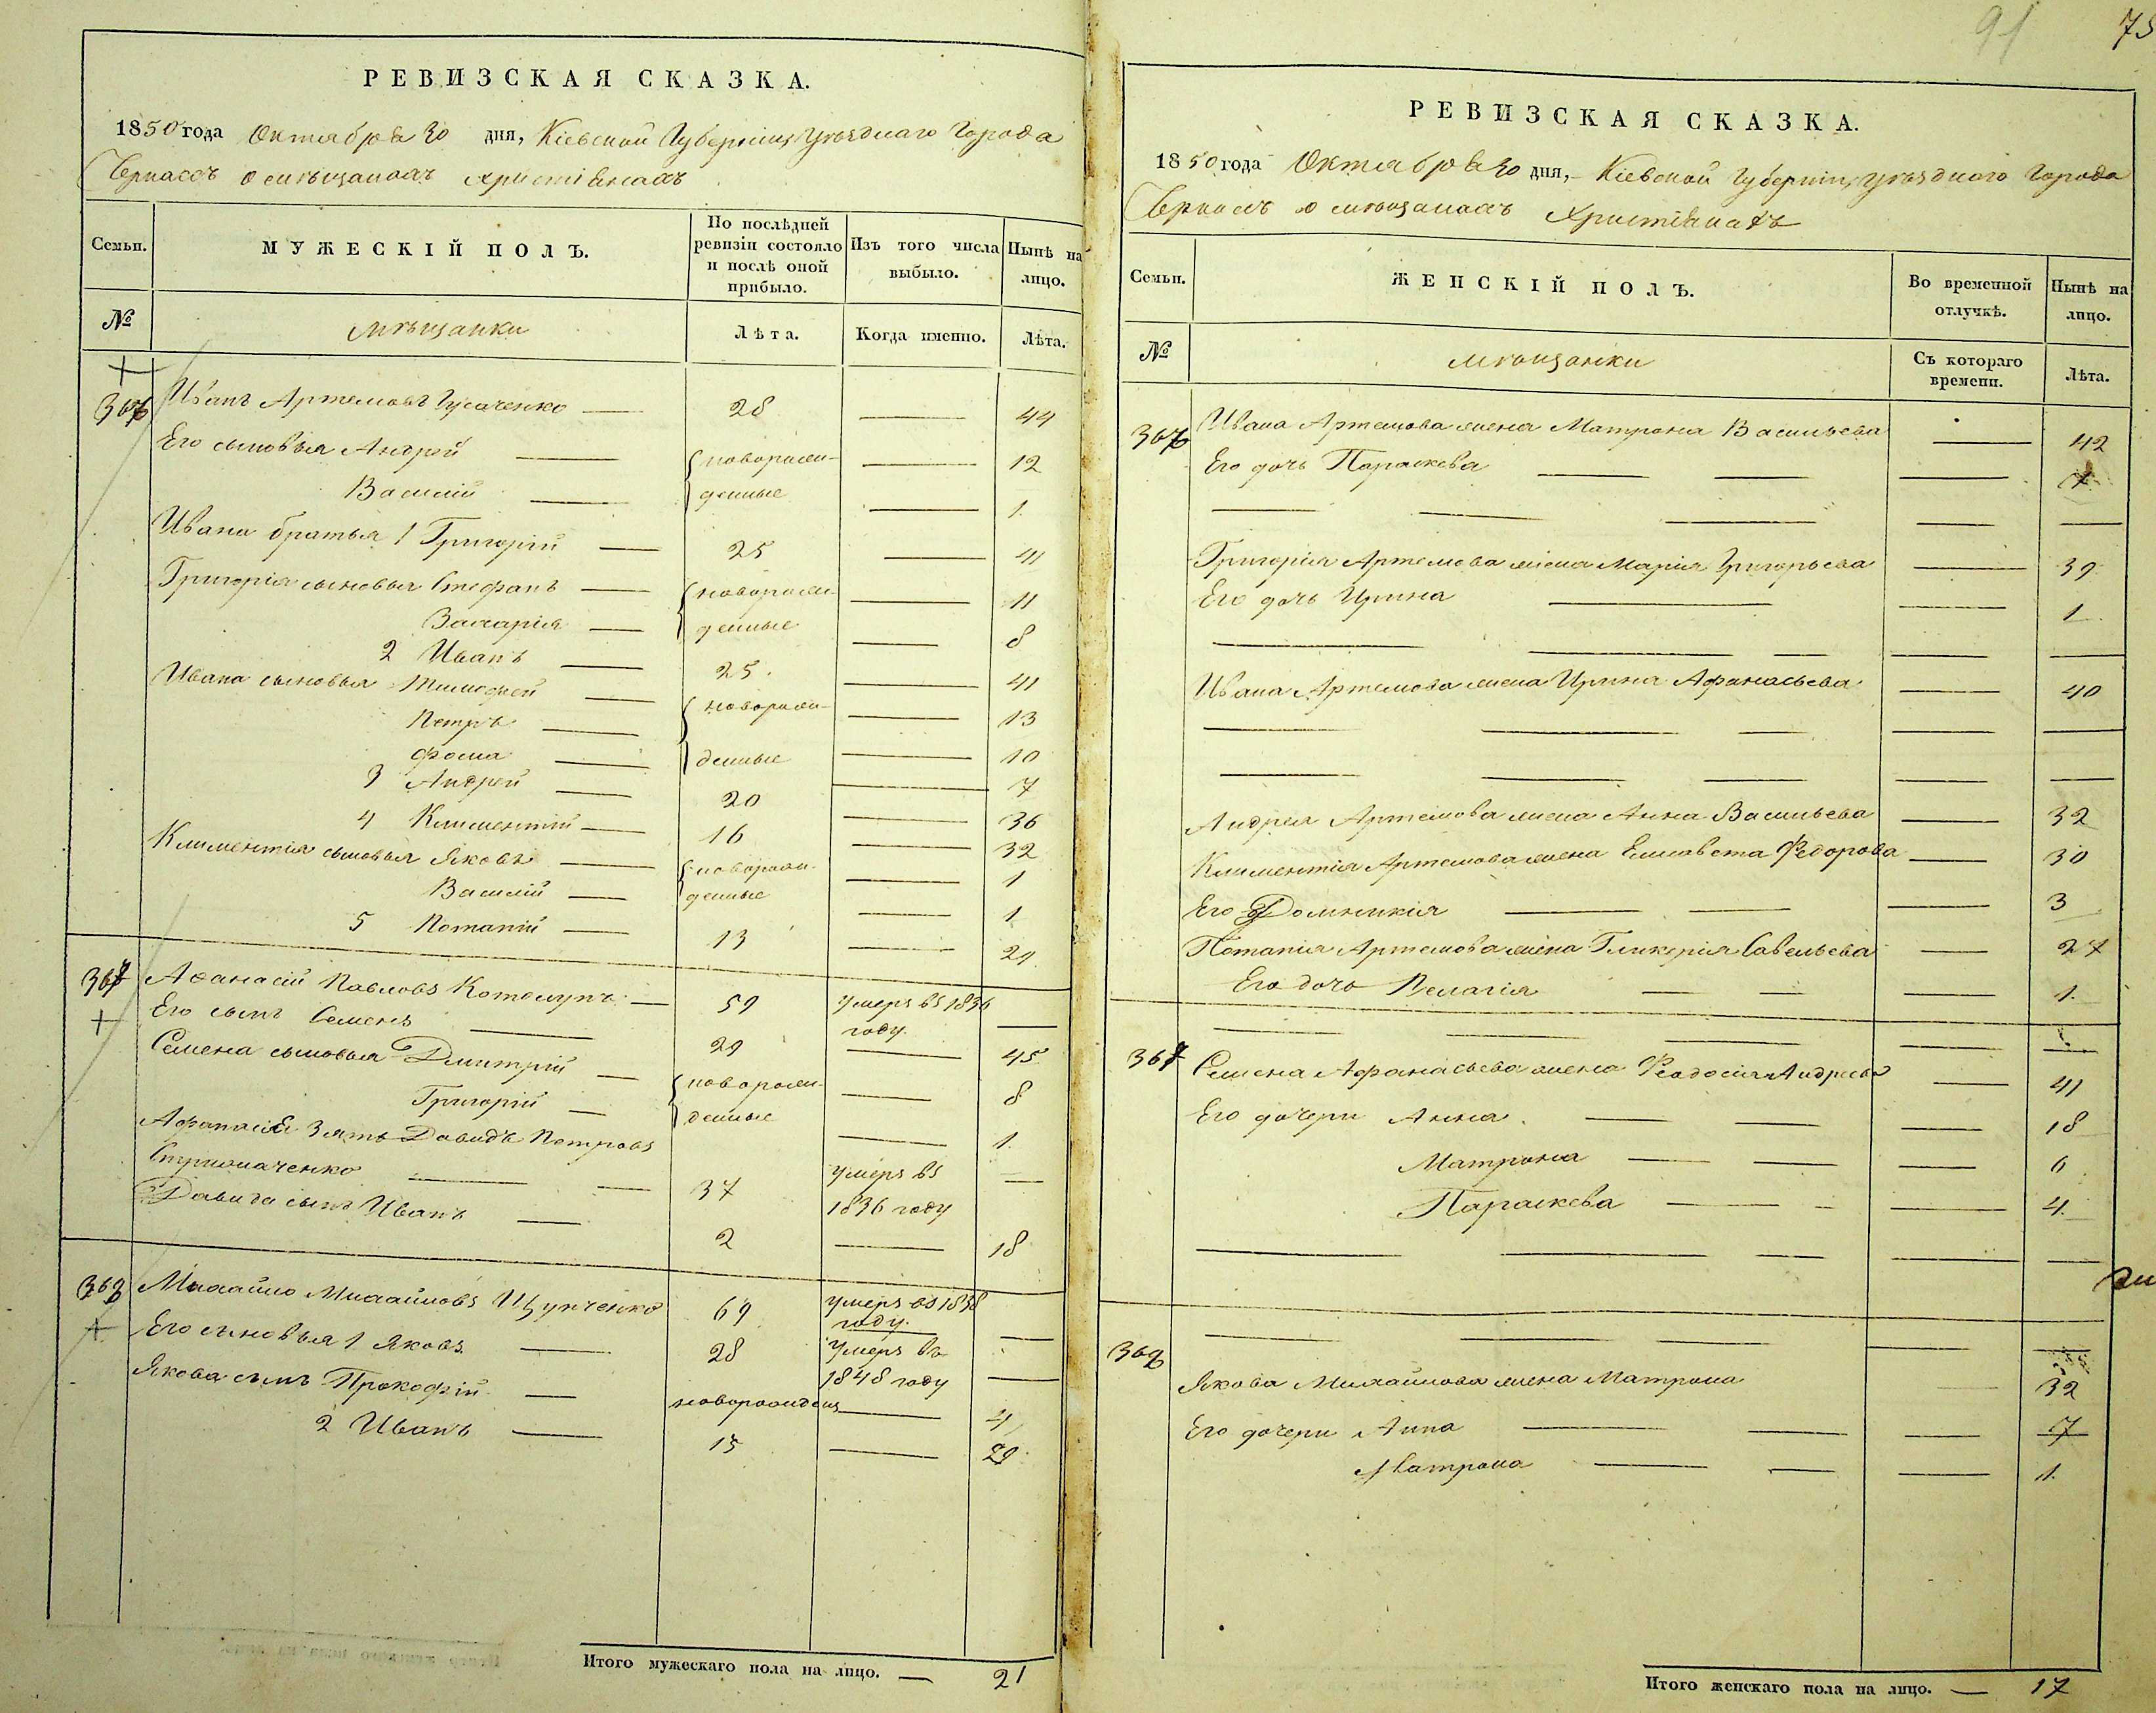 91
75
РЕВИЗСКАЯ СКАЗКА.
1850 года Октября 30 дня, Кіевской Губерніи уѣзднаго Города
Черкасъ о мѣщанахъ христіянахъ
Семьи.
МУЖЕСКІЙ ПОЛЪ.
По послѣдней ревизіи состояло и послѣ оной прибыло.
Изъ того числа выбыло.
Нынѣ на лицо.
№
мѣщанки
Лѣта.
Когда именно.
Лѣта.
Иванъ Артемовъ 28 44
Его сыновья Андрей новорож- 12
Василій денные 1.
Ивана братья 1 Григорій 25 41
Григорія сыновья Стефанъ новорож- 11
Захарія денные 8
2 Иванъ 25. 41
Ивана сыновья Тимофей новорож- 13
Петръ 10
Фома денные 7
3 Андрей 20 36
4 Климентій 16 32
Климентія сыновья Яковъ новорож- 1
Василій денные 1
5 Потапій 13 29
367 Афанасій Павловъ 59 умеръ въ 1836 году.
Его сынъ Семенъ 29 45
Семена сыновья Дмитрій новорож- 8
Григорій денные 1.
Афанасія Зять Давидъ Петровъ
37 умеръ въ 1836 году
Давида сынъ Иванъ 2 18
Михайло Михайловъ 69 умеръ въ 1838 году.
Его сыновья 1 Яковъ 28 умеръ въ 1848 году
Якова сынъ Прокофій новорожденъ 4
2 Иванъ 15 29
Итого мужескаго пола на лицо. — 21
РЕВИЗСКАЯ СКАЗКА.
1850 года Октября 30 дня, Кіевской Губерніи, уѣзднаго Города
Черкасъ о мѣщанахъ Христіянахъ
Семьи.
ЖЕНСКІЙ ПОЛЪ.
Во временной отлучкѣ.
Нынѣ на лицо.
№
мѣщанки
Съ котораго времени.
Лѣта.
Ивана Артемова жена Матрона Васильева 42
Его дочь Параскева
Григорія Артемова жена Марія Григорьева 39
Его дочь Ирина 1
Ивана Артемова жена Ирина Афанасьева 40
Андрея Артемова жена Анна Васильева 32
Климентія Артемова жена Елисавета Федорова 30
Его Домникія 3
Потапія Артемова жена Гликерія Савельева 27
Его дочь Пелагія 1.
367 Семена Афанасьева жена Феодосія Андреева 41
Его дочери Анна 18
Матрона 6
Параскева 4
Якова Михайлова жена Матрона 32
Его дочери Анна 7
Матрона 1.
Итого женскаго пола на лицо. — 17